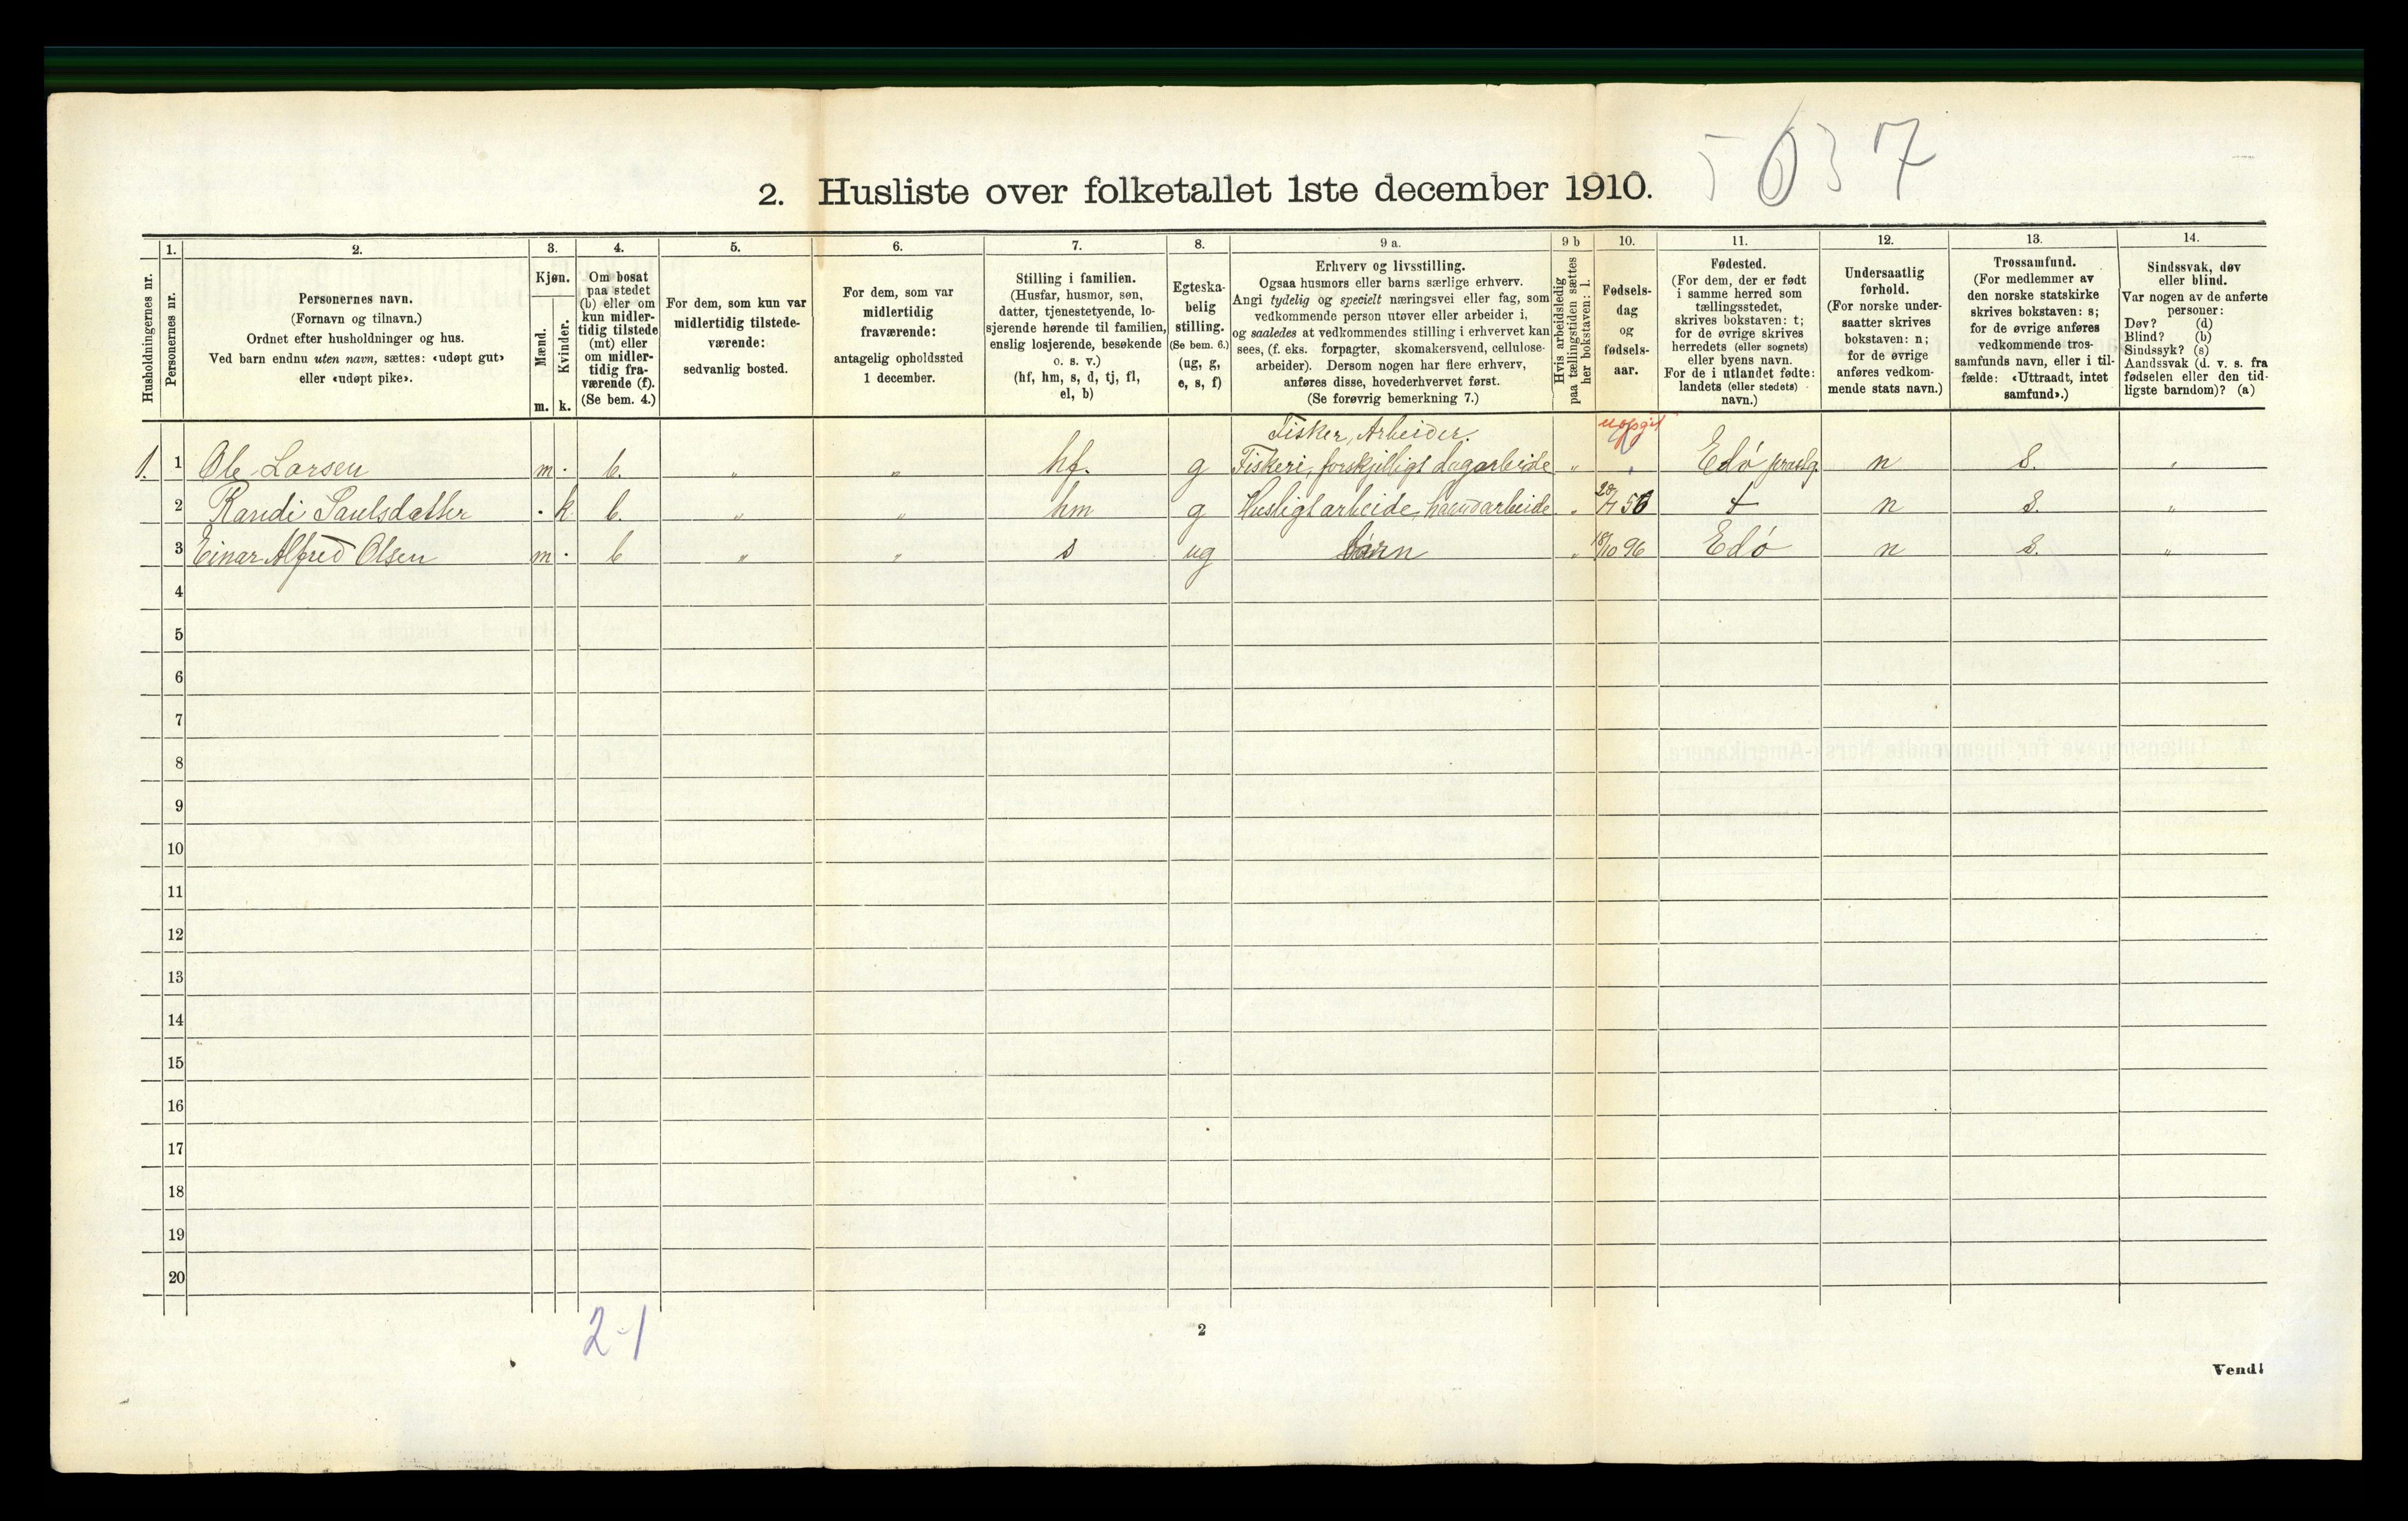 5037
2. Husliste over folketallet 1ste december 1910.
Husholdningernes nr.
1. Personernes nr.
2. Personernes navn.
(Fornavn og tilnavn.)
Ordnet efter husholdninger og hus.
Ved barn endnu uten navn, sættes: «udøpt gut»
eller «udøpt pike».
3. Kjøn.
Mænd. m.
Kvinder. k.
4. Om bosat
paa stedet
(b) eller om
kun midler-
tidig tilstede
(mt) eller
om midler-
tidig fra-
værende (f).
(Se bem. 4.)
5. For dem, som kun var
midlertidig tilstede-
værende:
sedvanlig bosted.
6. For dem, som var
midlertidig
fraværende:
antagelig opholdssted
1 december.
7. Stilling i familien.
(Husfar, husmor, søn,
datter, tjenestetyende, lo-
sjerende hørende til familien,
enslig losjerende, besøkende
o. s. v.)
(hf, hm, s, d, tj, fl,
el, b)
8. Egteska-
belig
stilling.
(Se bem. 6.)
(ug, g,
e, s, f)
9 a. Erhverv og livsstilling.
Ogsaa husmors eller barns særlige erhverv.
Angi tydelig og specielt næringsvei eller fag, som
vedkommende person utøver eller arbeider i,
og saaledes at vedkommendes stilling i erhvervet kan
sees, (f. eks. forpagter, skomakersvend, cellulose-
arbeider). Dersom nogen har flere erhverv,
anføres disse, hovederhvervet først.
(Se forøvrig bemerkning 7.)
9 b Hvis arbeidsledig
paa tællingstiden sættes
her bokstaven: l.
10. Fødsels-
dag
og
fødsels-
aar.
11. Fødested.
(For dem, der er født
i samme herred som
tællingsstedet,
skrives bokstaven: t;
for de øvrige skrives
herredets (eller sognets)
eller byens navn.
For de i utlandet fødte:
landets (eller stedets)
navn.)
12. Undersaatlig
forhold.
(For norske under-
saatter skrives
bokstaven: n;
for de øvrige
anføres vedkom-
mende stats navn.)
13. Trossamfund.
(For medlemmer av
den norske statskirke
skrives bokstaven: s;
for de øvrige anføres
vedkommende tros-
samfunds navn, eller i til-
fælde: «Uttraadt, intet
samfund».)
14. Sindssvak, døv
eller blind.
Var nogen av de anførte
personer:
Døv? (d)
Blind? (b)
Sindssyk? (s)
Aandssvak (d. v. s. fra
fødselen eller den tid-
ligste barndom)? (a)
Fisker, Arbeider. uopgit
1. 1 Ole Larsen m . b. „ „ hf. g Fiskeri, forskjelligt dagarbeide „ Edó præstg. n s. „
2 Randi Paulsdatter . k b. „ „ hm g Husligt arbeide, haandarbeide „ t n s. „
3 Einar Alfred Olsen m . b „ „ s ug barn „ 18/10 96 Edó n s. „
4
5
6
7
8
9
10
11
12
13
14
15
16
17
18
19
20
2-1
2
Vend!